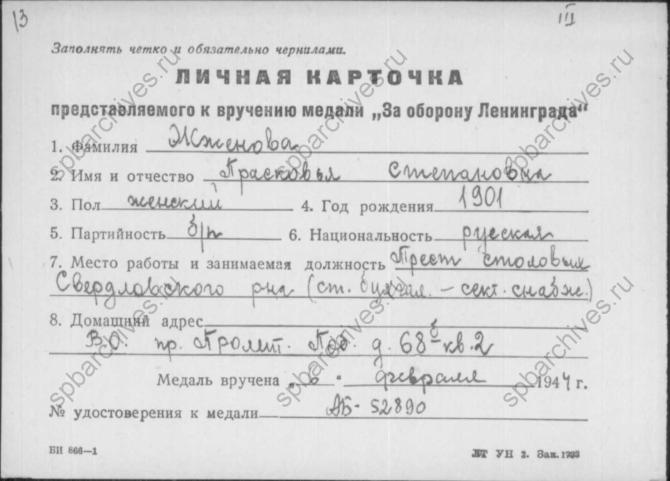 13
III
Заполнять четко и обязательно чернилами.
ЛИЧНАЯ КАРТОЧКА
представляемого к вручению медали „За оборону Ленинграда“
1. Фамилия Жженова
2. Имя и отчество Прасковья Степановна
3. Пол женский 4. Год рождения 1901
5. Партийность б/п 6. Национальность русская
7. Место работы и занимаемая должность Трест столовых
Свердловского рна (ст. бухгал. – сект. снабж.)
8. Домашний адрес
В.О. пр. Пролет. Поб. д. 68б кв. 2
Медаль вручена „6“ февраля 1944 г.
№ удостоверения к медали АБ- 52890
БИ 866—1
ЛТ УН 2. Зак.
spbarchives.ru
spbarchives.ru
spbarchives.ru
spbarchives.ru
spbarchives.ru
spbarchives.ru